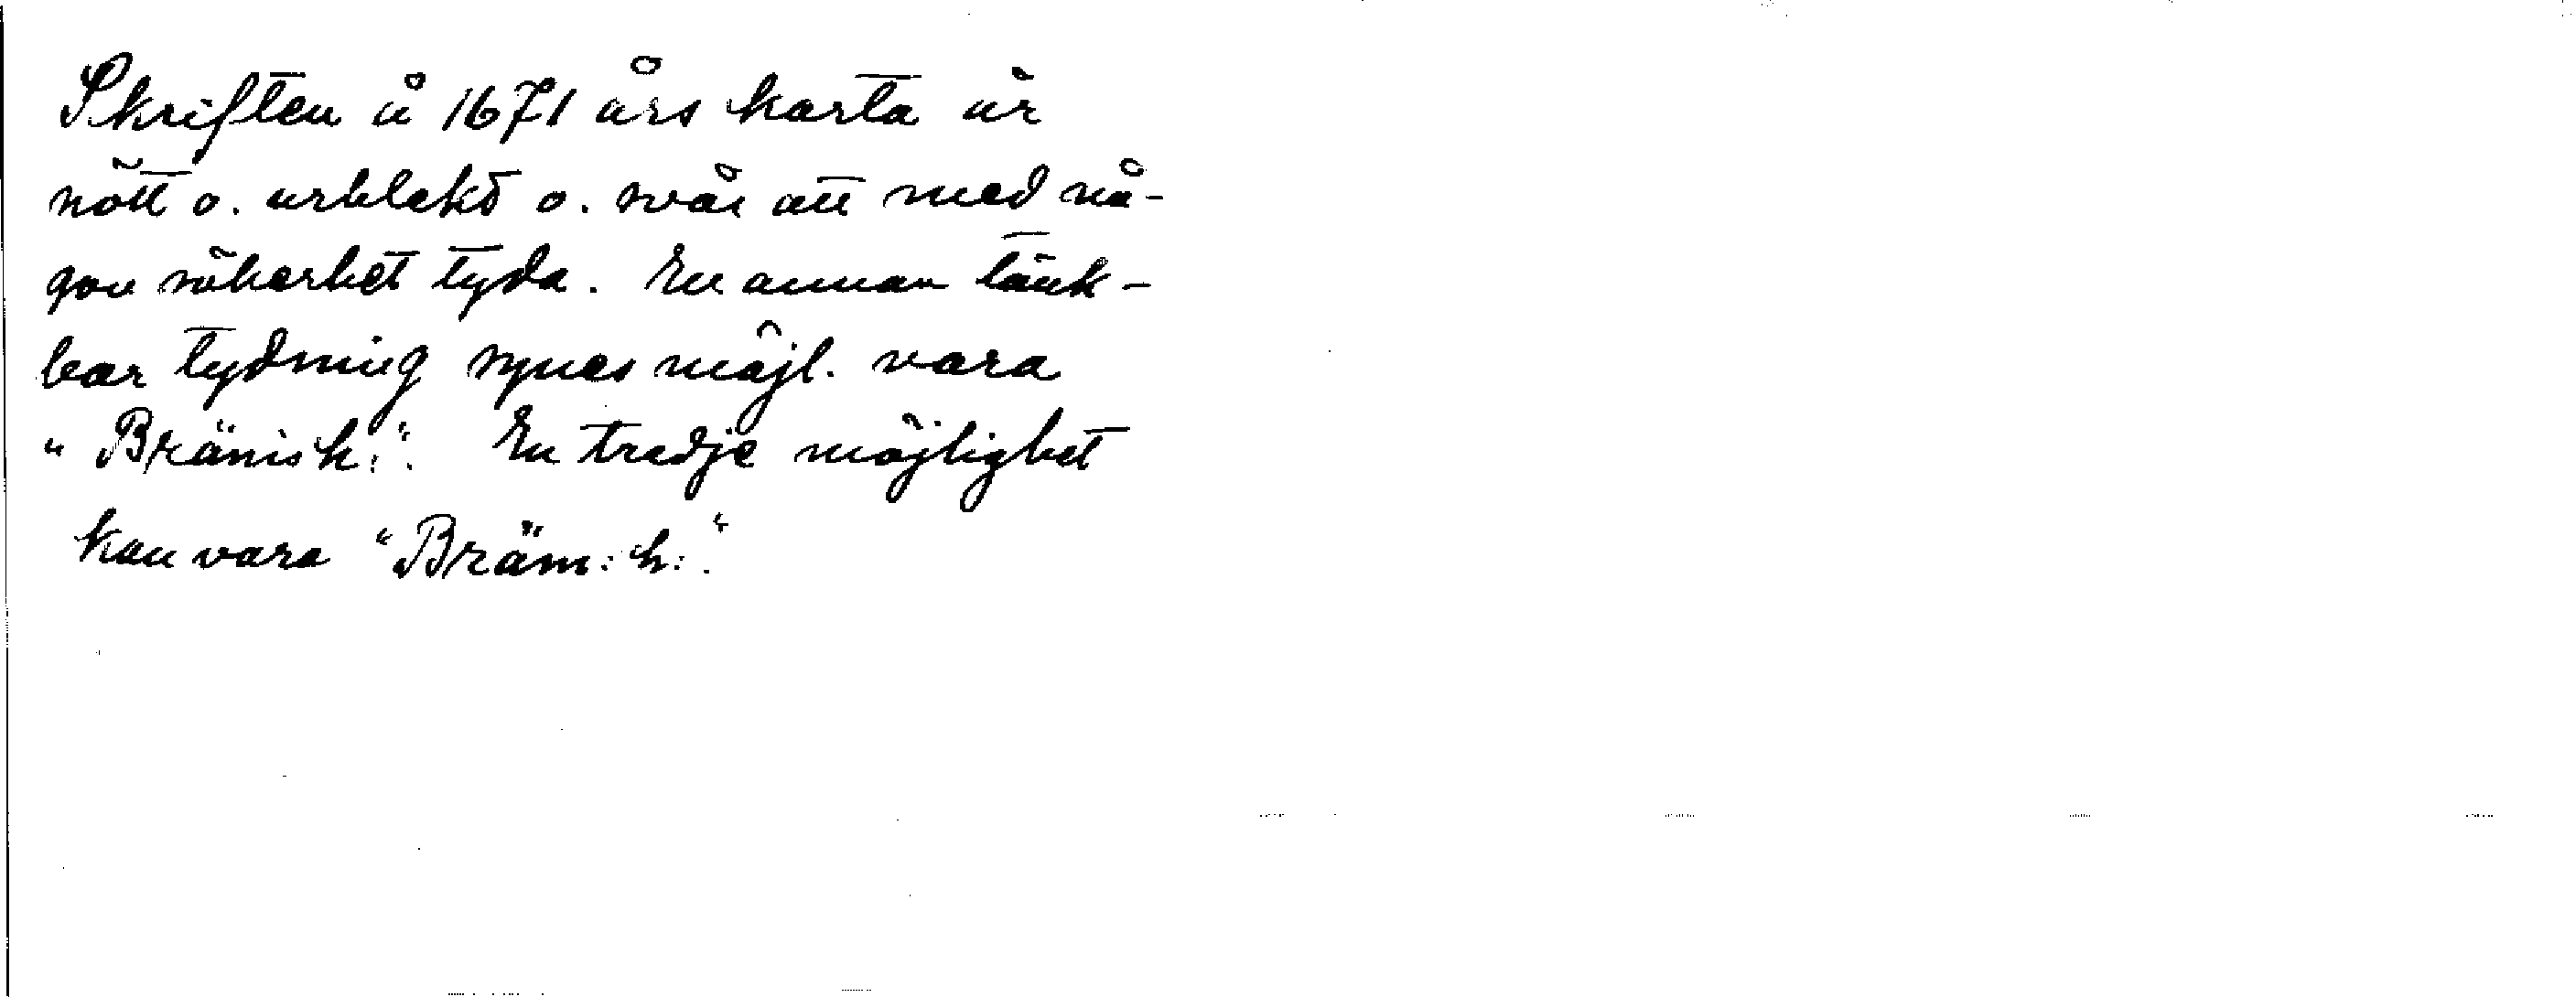 Skriften å 1671 års karta är
nött o. urblekt o. svår att med nå-
gon säkerhet tyda. En annan tänk-
bar tydning synes möjl. vara
"Bränish:". En tredje möjlighet
kan vara "Bräm: h:".